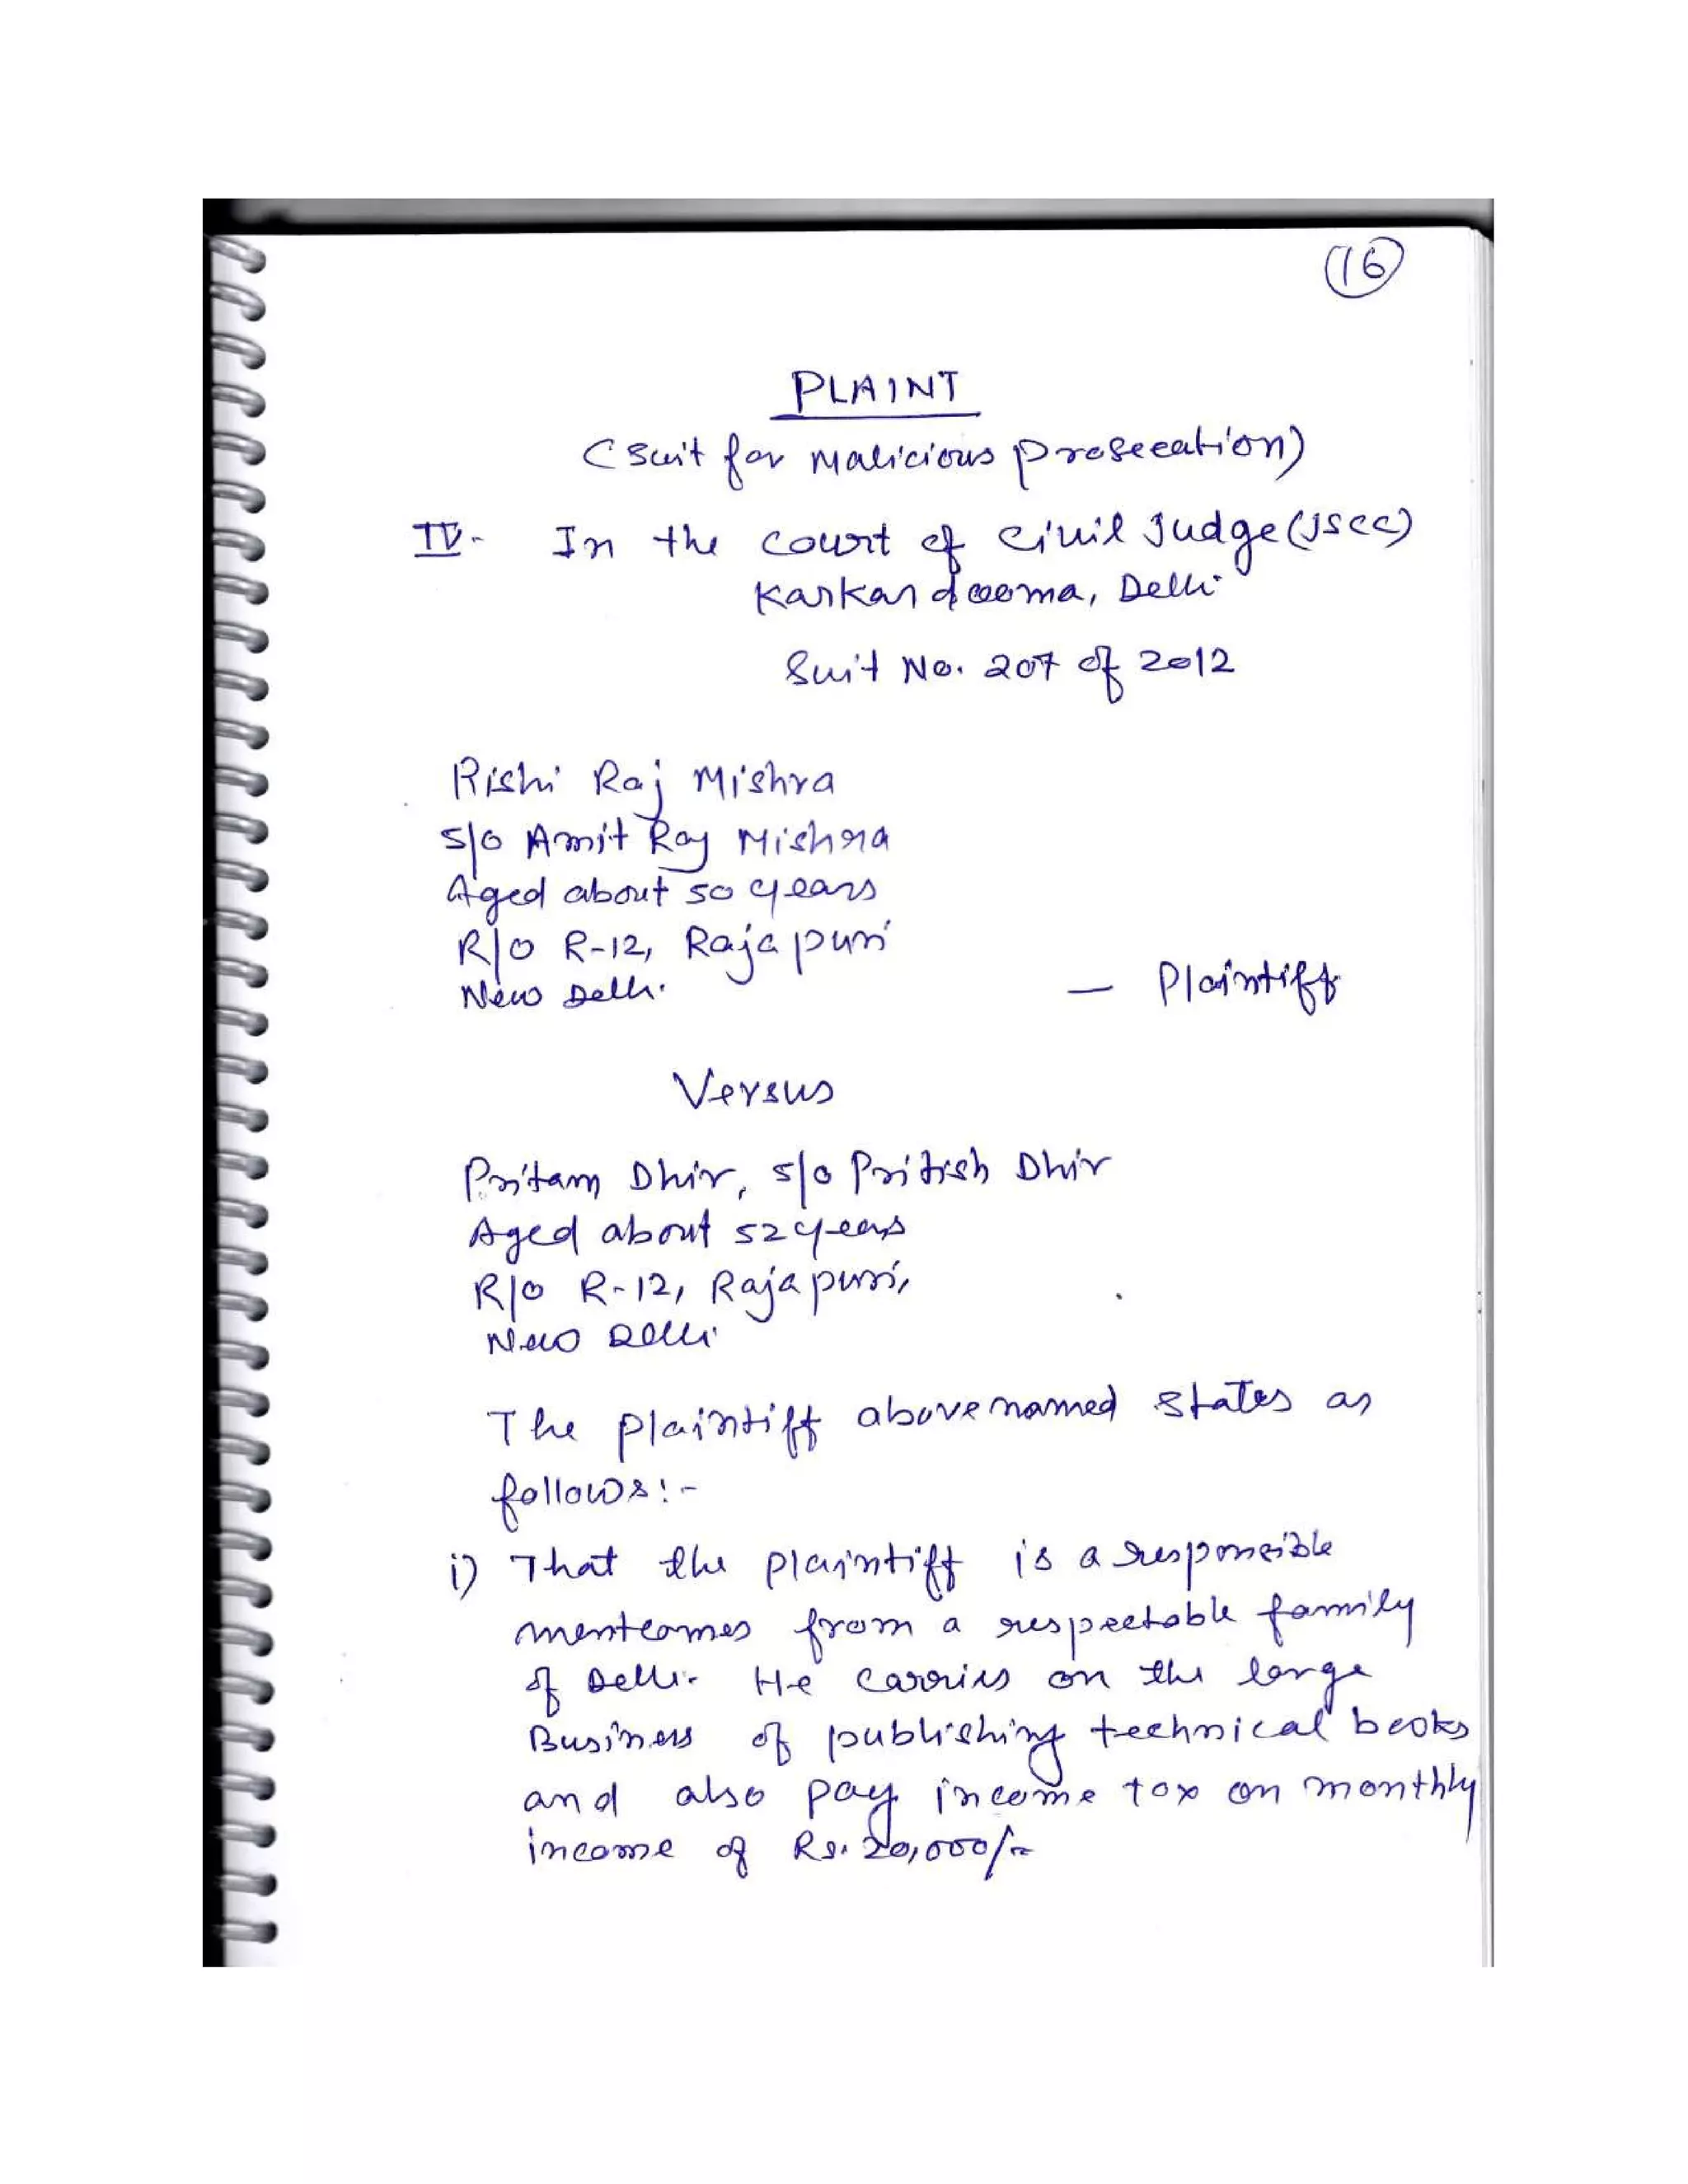 16
PLAINT
(Suit for Malicious Prosecation)
IV- In the Court of Civil Judge (JSCC)
Karkardooma, Delhi
Suit No. 207 of 2012
Rishi Raj Mishra
S/o Amit Raj Mishra
Aged about 50 years
R/o R-12, Rajapuri
New Delhi.
— Plaintiff
Versus
Pritam Dhir, S/o Pritish Dhir
Aged about 52 years
R/o R-12, Rajapuri,
New Delhi
The plaintiff abovenamed states as
follows:-
i) That the plaintiff is a responsible
from a respectable family
of Delhi. He carries on the large
Business of publishing technical books
and also pay income tax on monthly
income of Rs. 20,000/-